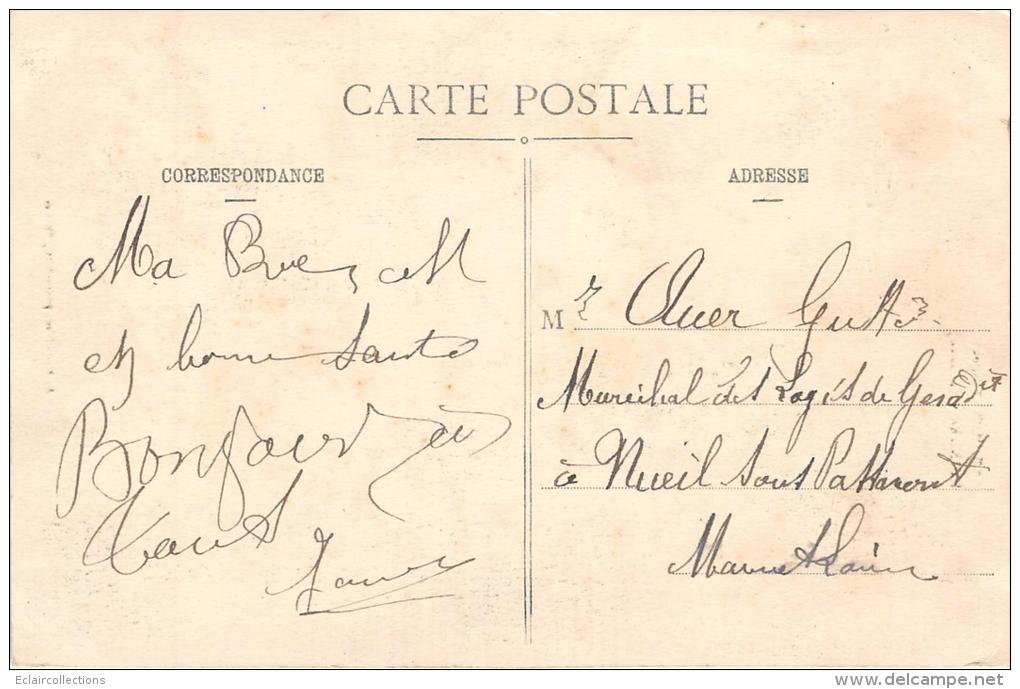 CARTE POSTALE
CORRESPONDANCE
Ma
en bonne Santé
Bonjour à
tous
ADRESSE
M r Auer
Maréchal des Logis de
à Nueil Sous Passavant
Maine et Loire
Eclaircollections
www.delcampe.net